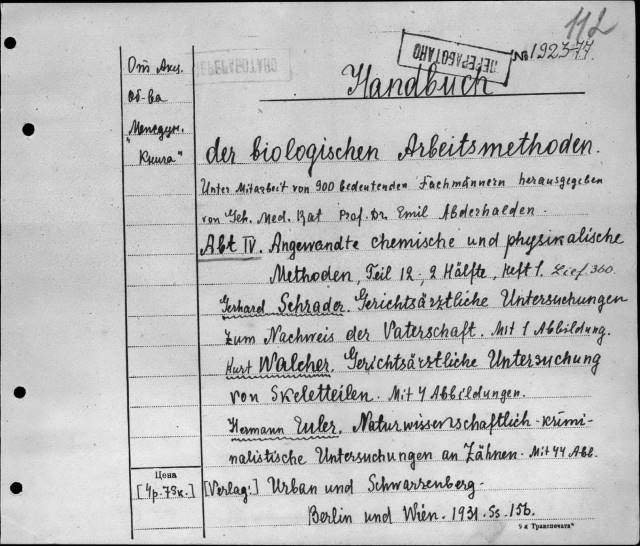 112
ПЕРЕРАБОТАНО
№ 1923-77.
Handbuch
От Акц.
Об-ва
Междун.
"Книга"
der biologischen Arbeitsmethoden.
Unter Mitarbeit von 900 bedeutenden Fachmännern herausgegeben
von Geh. Med. Rat Prof. Dr. Emil Abderhalden.
Abt IV. Angewandte chemische und physikalische
Methoden, Teil 12, 2 Hälfte, Heft 1. Lief 360.
Gerhard Schrader. Gerichtsärztliche Untersuchungen
zum Nachweis der Vaterschaft. Mit 1 Abbildung.
Kurt Walcher. Gerichtsärztliche Untersuchung
von Skeletteilen. Mit 4 Abbildungen.
Hermann Euler. Naturwissenschaftlich-krimi-
nalistische Untersuchungen an Zähnen. Mit 44 Abb.
Цена
[4р.75к.]
[Verlag:] Urban und Schwarzenberg.
Berlin und Wien. 1931. Ss. 156.
Транпечать"